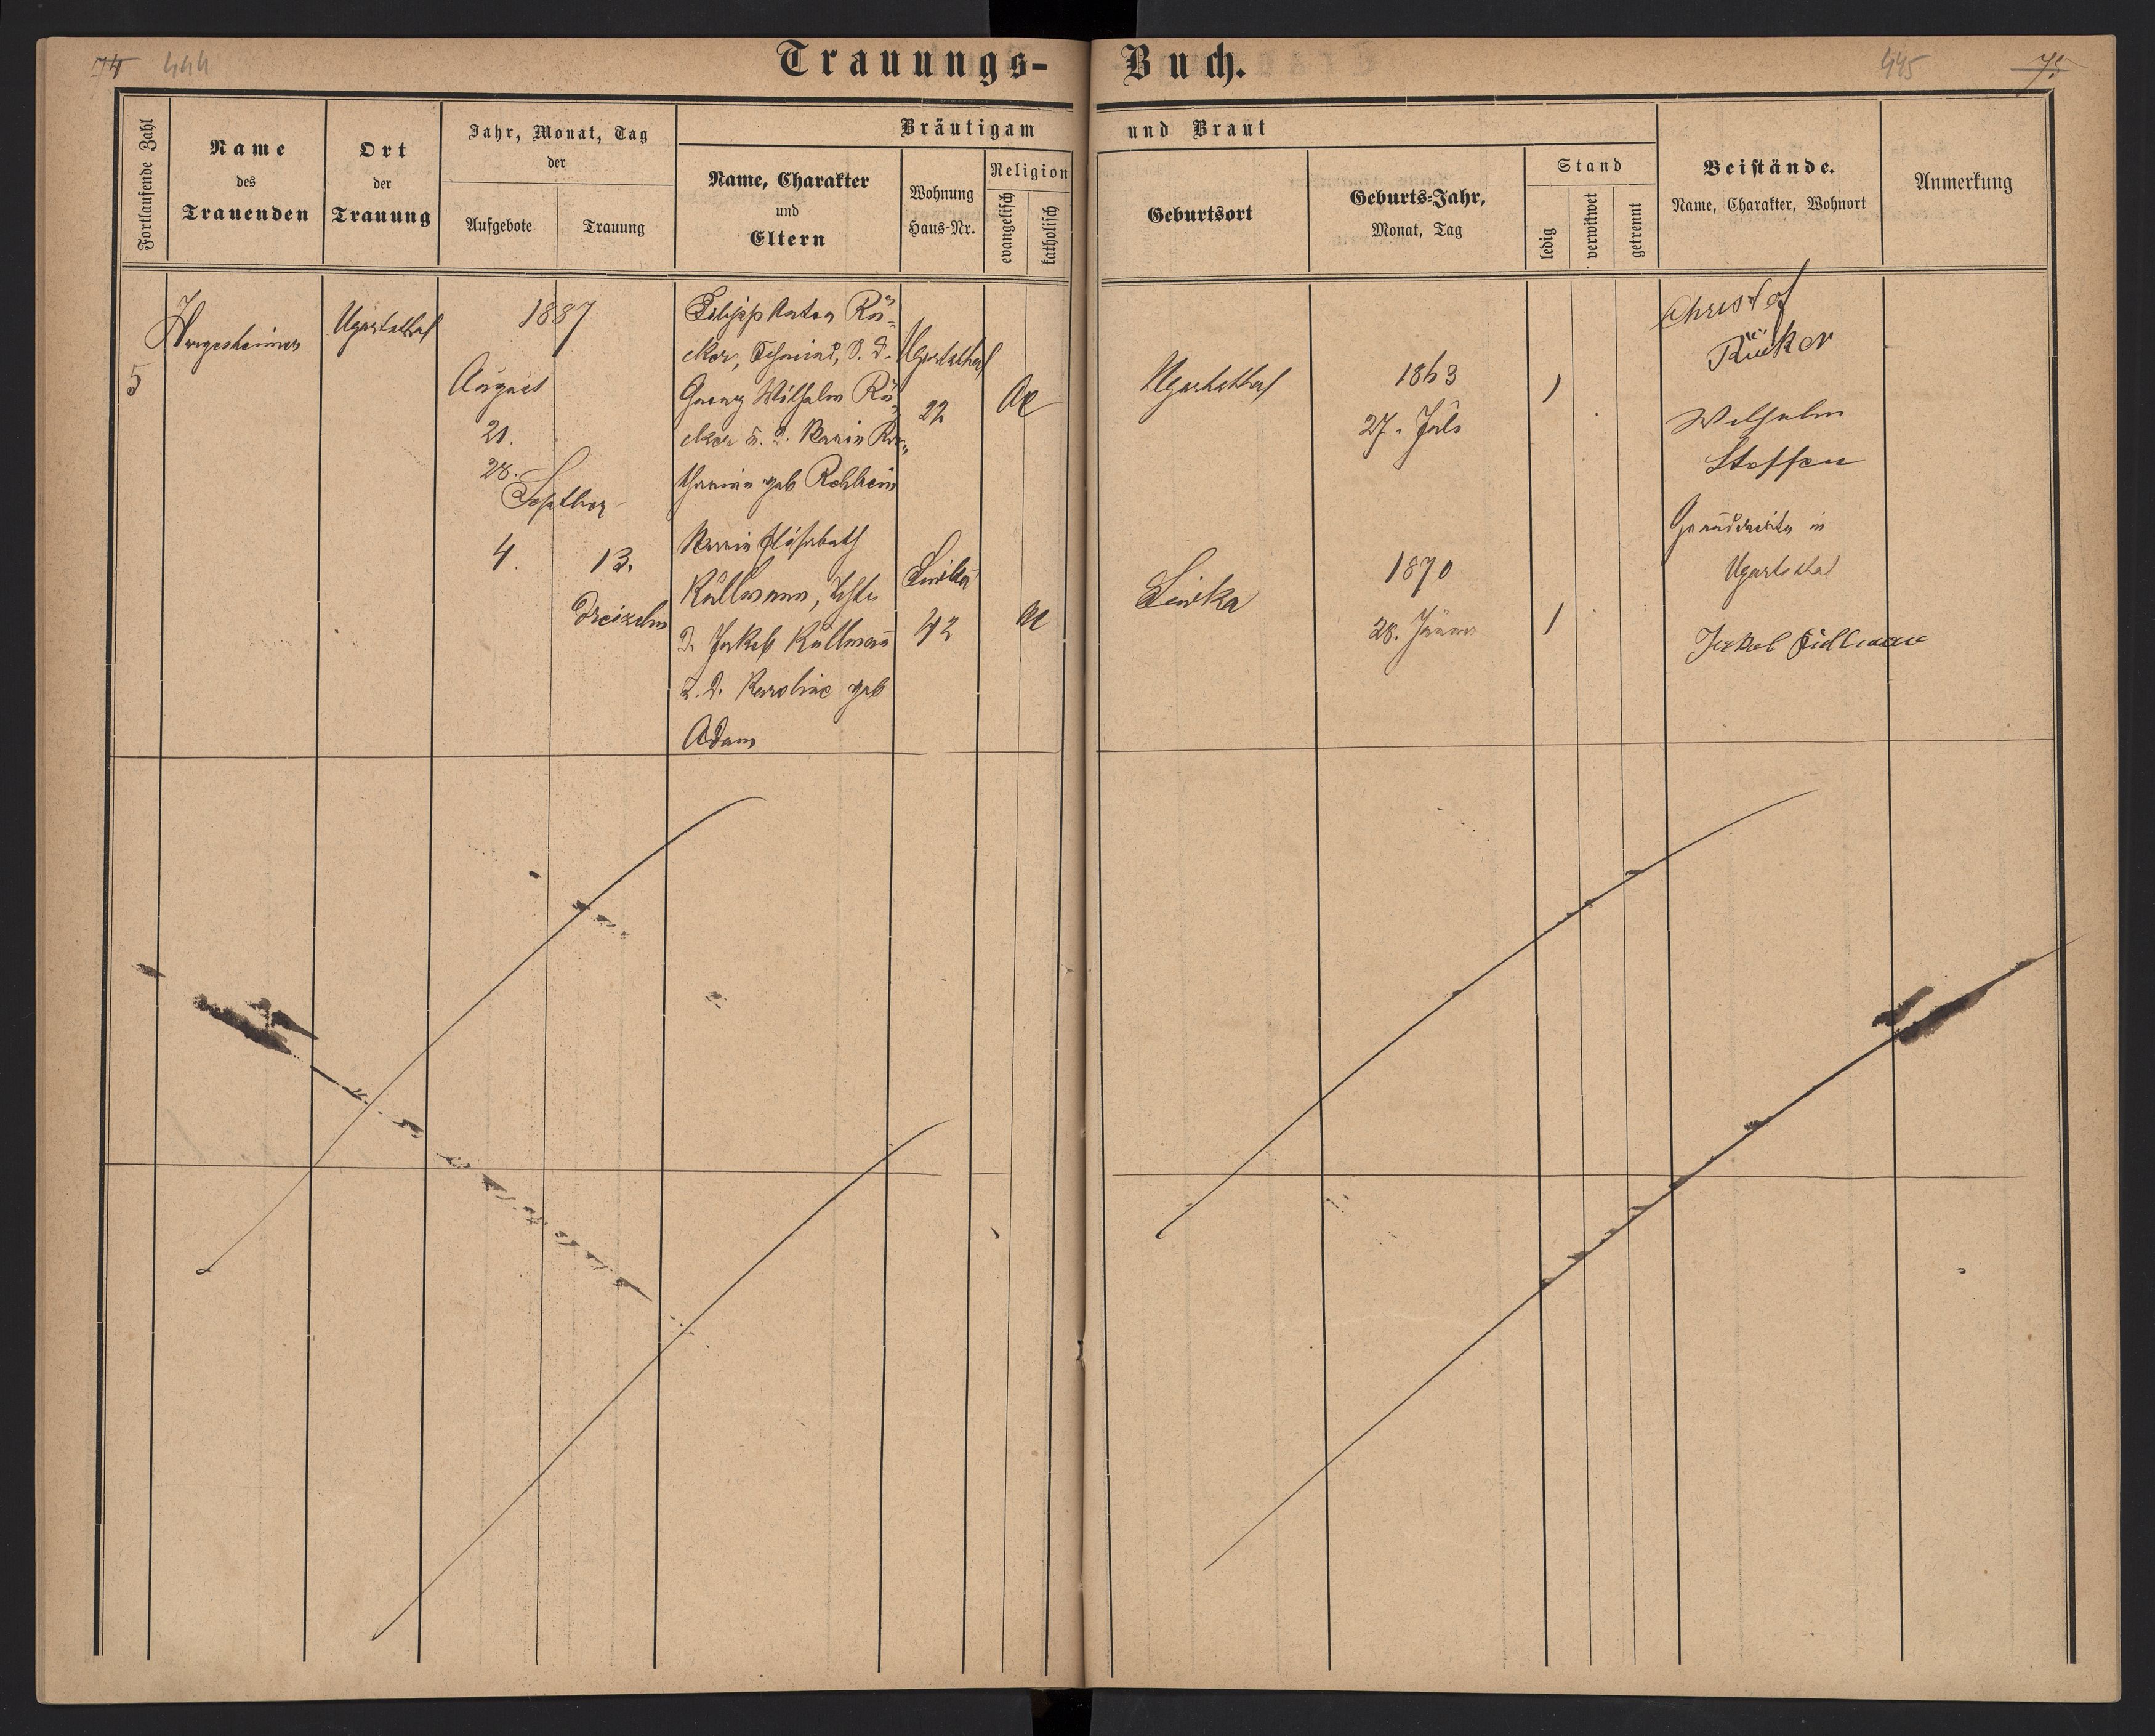 74 444
Trauungs- Buch.
445 75
Fortlaufende Zahl
Name
des
Trauenden
Ort
der
Trauung
Jahr, Monat, Tag
der
Aufgebote
Trauung
Bräutigam und Braut
Name, Charakter
und
Eltern
Wohnung
Haus-Nr.
Religion
evangelisch
katholisch
Geburtsort
Geburts-Jahr,
Monat, Tag
Stand
ledig
verwitwet
getrennt
Beistände.
Name, Charakter, Wohnort
Anmerkung
5
Hargesheimer
Ugartsthal
1887
August
21.
28.
Septber
4.
13.
Dreizehn
Filipp Anton Rü-
cker, Schmied, S. d.
Georg Wilhelm Rü-
cker u. d. Maria Ka-
tharina geb Rehhein
Ugartsthal
22
AC
Ugartsthal
1863
27. Juli
1
Maria Elisabeth
Küllmann, Tchtr
d. Jakob Küllmann
u. d. Karoline geb
Adam
Siwka
42
Siwka
1870
28. Jänner
1
Christof
Rücker
Wilhelm
Steffen
Grundwirte in
Ugartsthal
Jakob Küllmann